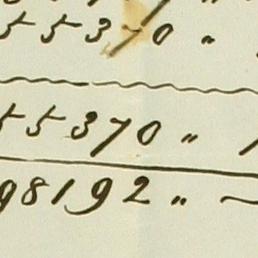 55370 "
55370 "
98192 " ~